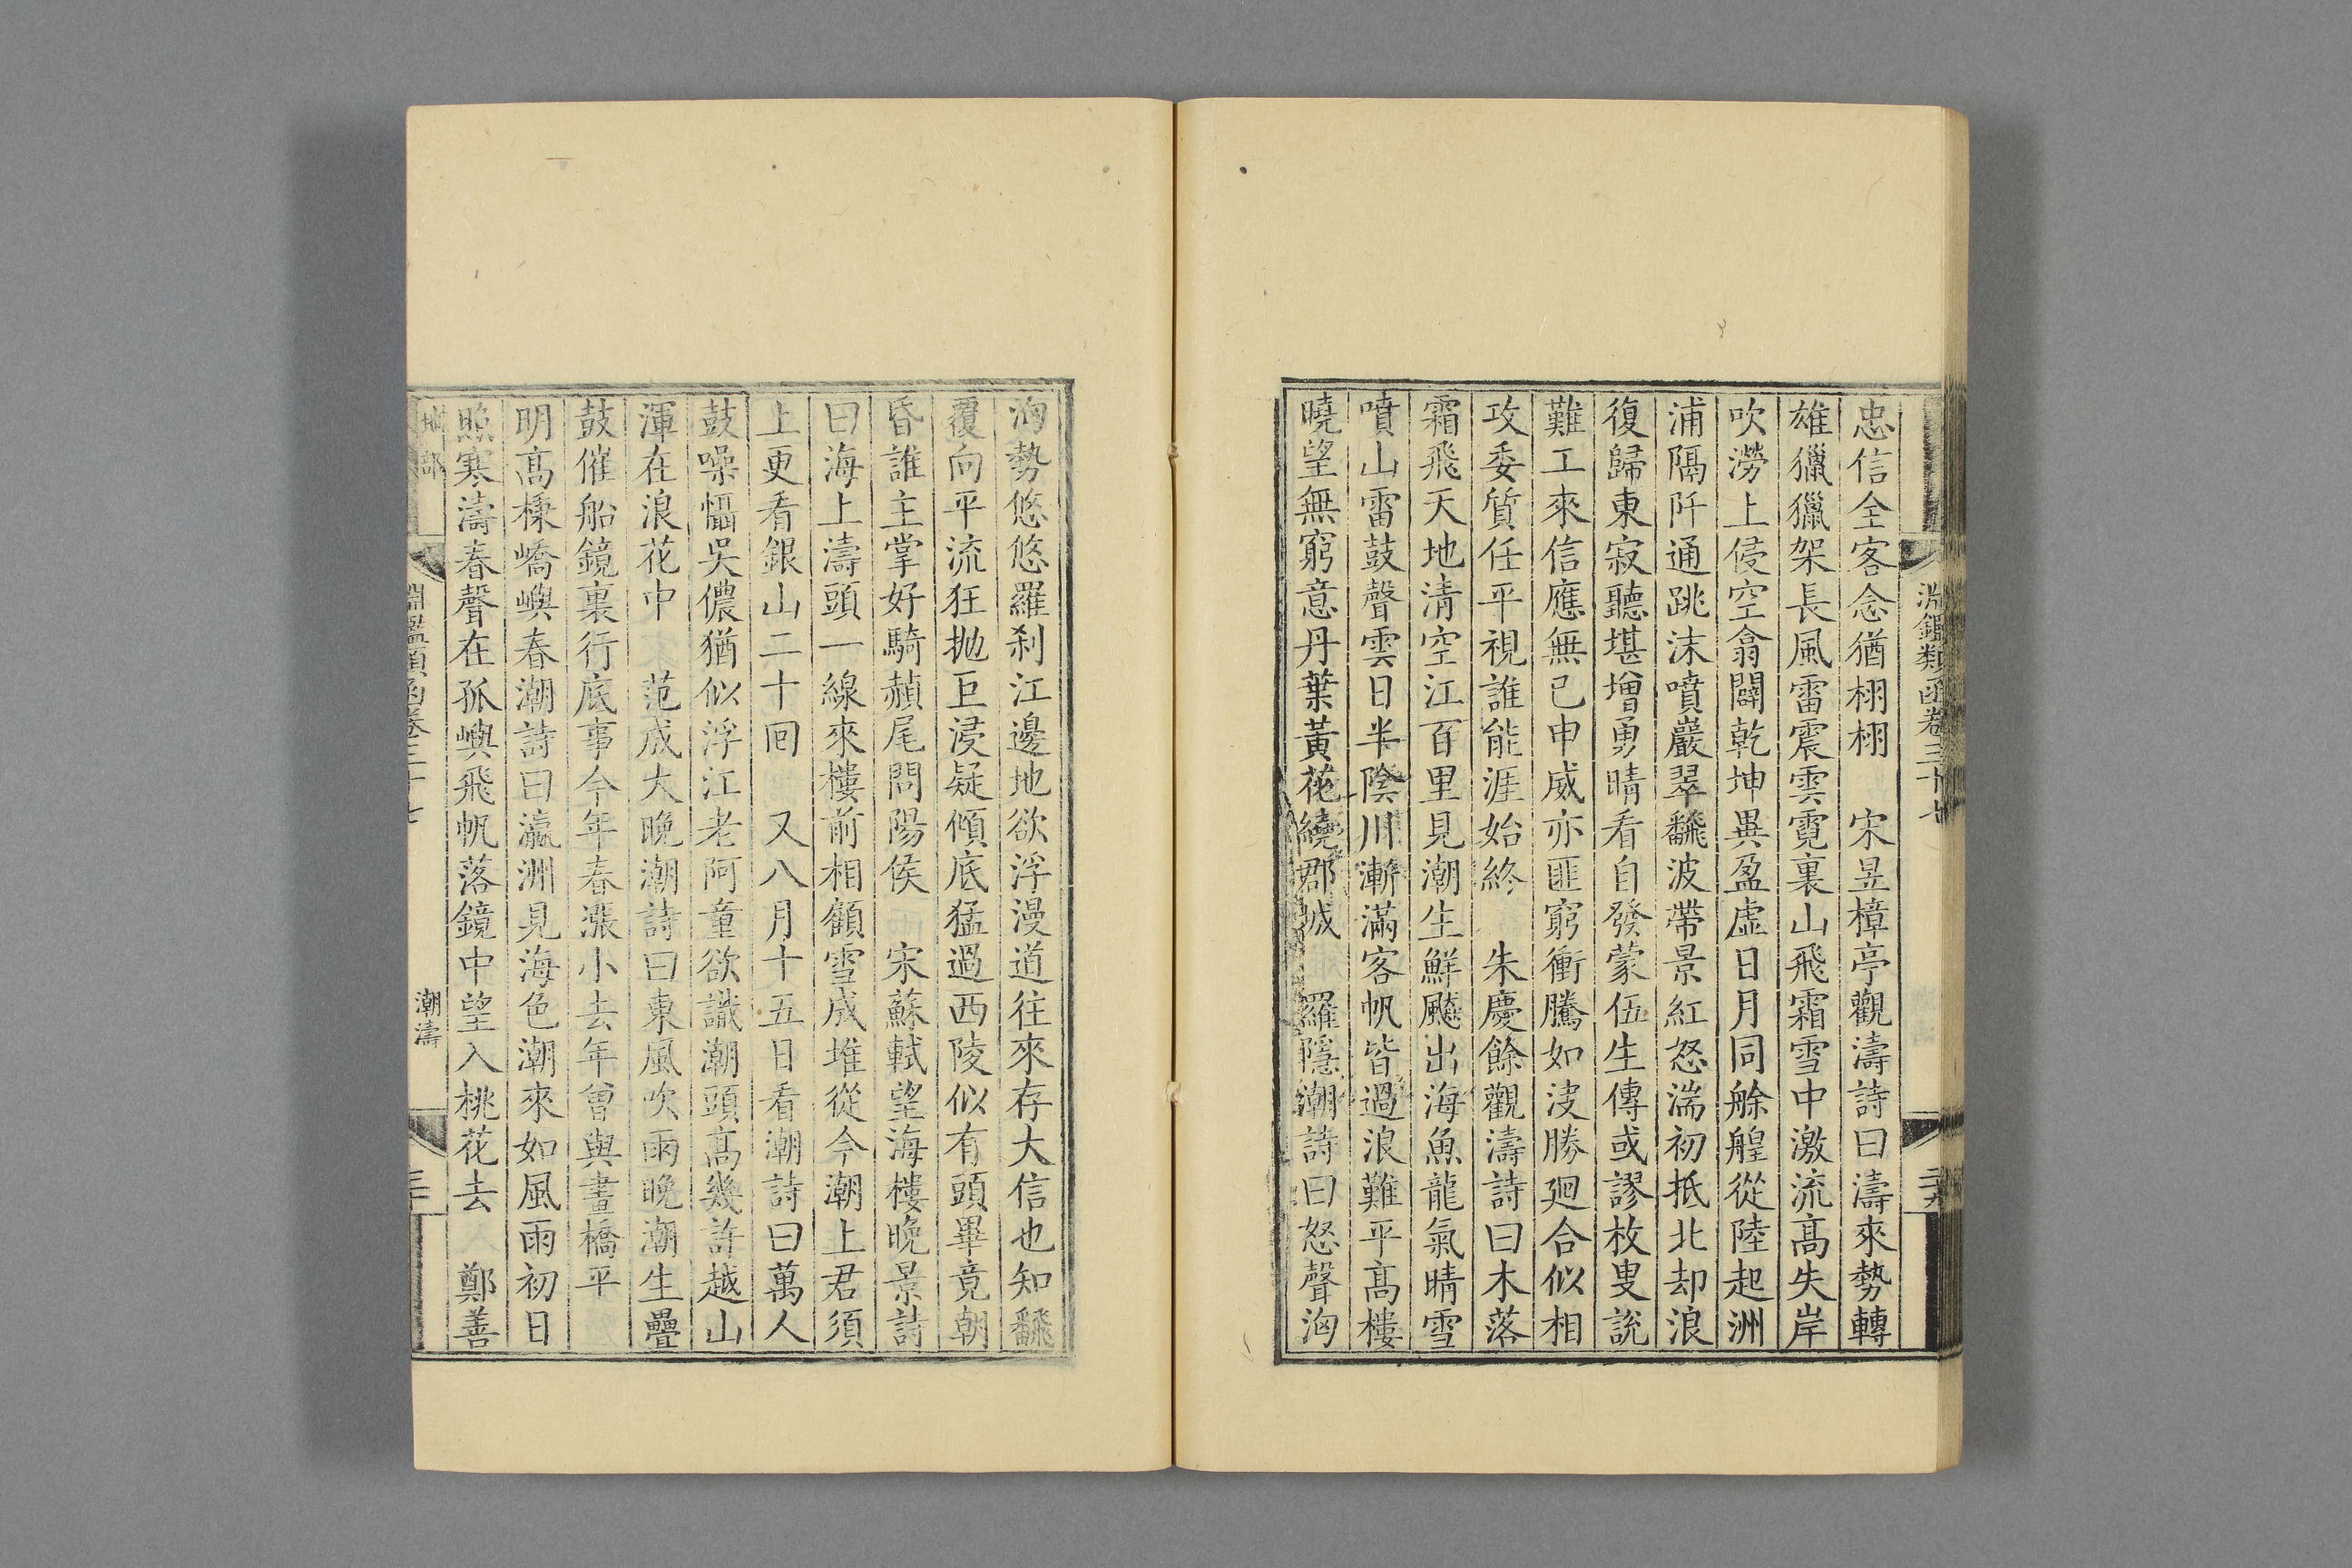 淵鑑類函卷三十七
二十九
忠信全客念猶栩栩　宋昱樟亭觀濤詩曰濤來勢轉
雄獵獵架長風雷震雲霓裏山飛霜雪中激流高失岸
吹澇上侵空翕闢乾坤異盈虛日月同艅艎從陸起洲
浦隔阡通跳沫噴巖翠飜波帶景紅怒湍初抵北却浪
復歸東寂聽堪增勇晴看自發蒙伍生傳或謬枚叟說
難工來信應無已申威亦匪窮衝騰如決勝廻合似相
攻委質任平視誰能涯始終　朱慶餘觀濤詩曰木落
霜飛天地清空江百里見潮生鮮飈出海魚龍氣晴雪
噴山雷鼓聲雲日半陰川漸滿客帆皆過浪難平高樓
曉望無窮意丹葉黃花繞郡城　羅隱潮詩曰怒聲洶
洶勢悠悠羅刹江邊地欲浮漫道往來存大信也知飜
覆向平流狂抛巨浸疑傾底猛過西陵似有頭畢竟朝
昏誰主掌好騎赬尾問陽侯　宋蘇軾望海樓晚景詩
曰海上濤頭一線來樓前相顧雪成堆從今潮上君須
上更看銀山二十回　又八月十五日看潮詩曰萬人
鼓噪懾吳儂猶似浮江老阿童欲識潮頭高幾許越山
渾在浪花中　范成大晚潮詩曰東風吹雨晚潮生疊
鼓催船鏡裏行底事今年春漲小去年曾與畫橋平
明高棅嶠嶼春潮詩曰瀛洲見海色潮來如風雨初日
照寒濤春聲在孤嶼飛帆落鏡中望入桃花去　鄭善
地部
淵鑑類函卷三十七
潮濤
三十